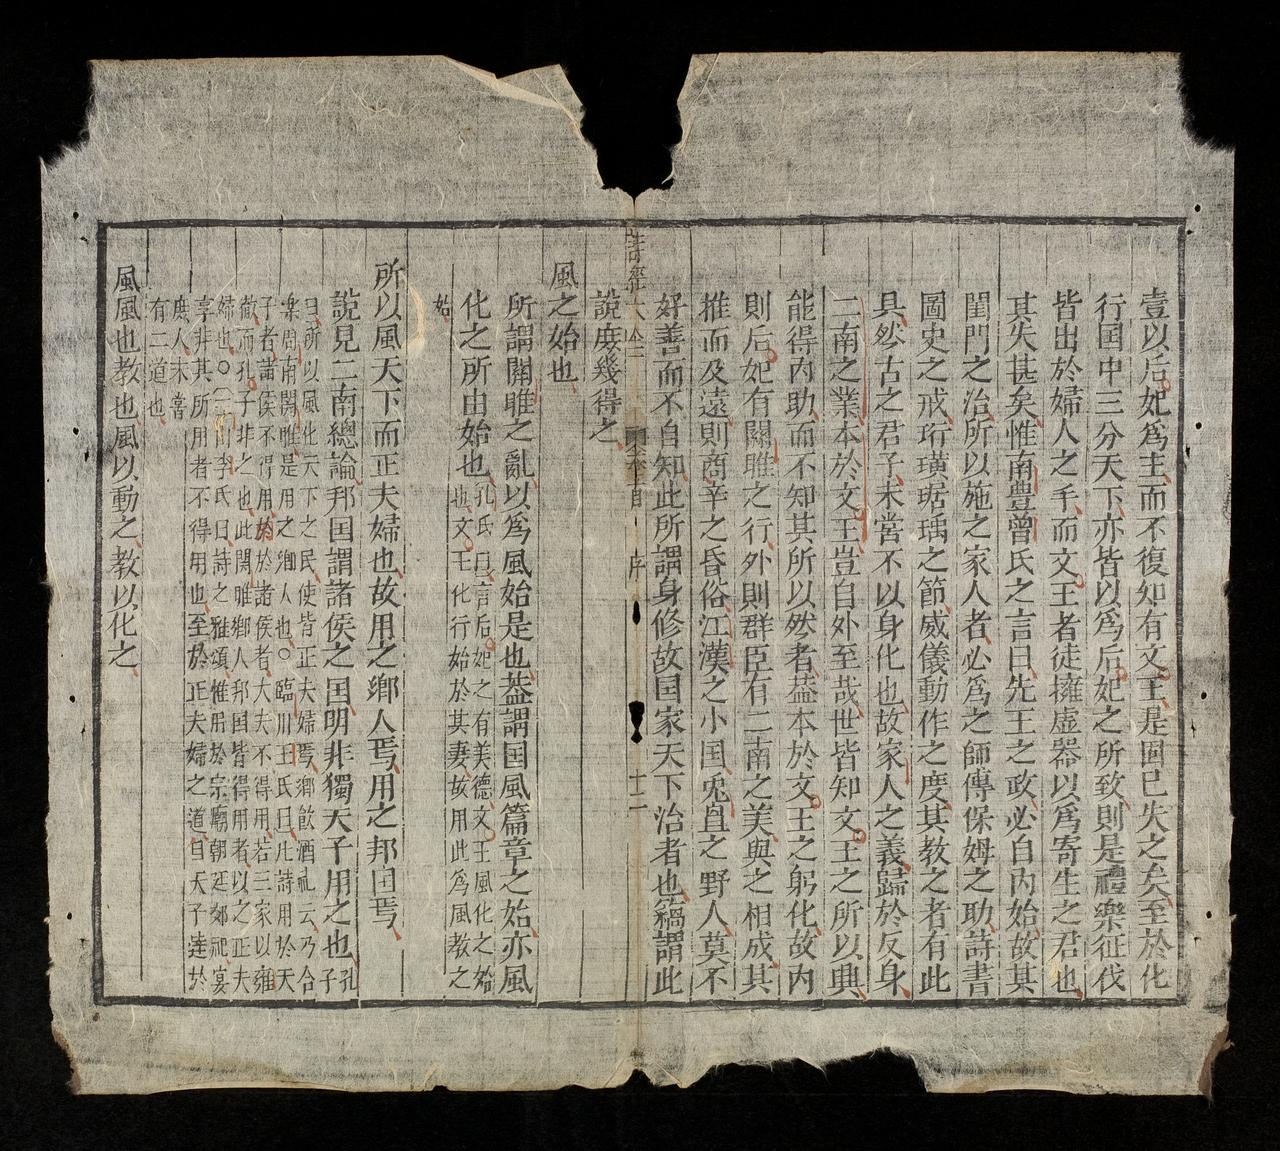 壹以后妃爲主而不復知有文王是固已失之矣至於化
行囯中三分天下亦皆以爲后妃之所致則是禮樂征伐
皆出於婦人之手而文王者徒擁虚器以爲寄生之君也
其失甚矣惟南豐曾氏之言曰先王之政必自内始故其
閨門之治所以施之家人者必爲之師傅保姆之助詩書
圖史之戒珩璜琚瑀之節威儀動作之度其教之者有此
具然古之君子未甞不以身化也故家人之義歸於反身
二南之業本於文王豈自外至哉世皆知文王之所以興
能得内助而不知其所以然者葢本於文王之躬化故内
則后妃有關雎之行外則群臣有二南之美與之相成其
推而及遠則商辛之昏俗江漢之小囯兎罝之野人莫不
好善而不自知此所謂身修故囯家天下治者也竊謂此
詩經大全
卷首
序
十二
說庶幾得之
風之始也
所謂關雎之亂以爲風始是也葢謂囯風篇章之始亦風
化之所由始也
孔氏曰言后妃之有美德文王風化之始
也文王化行始於其妻故用此爲風教之
始
所以風天下而正夫婦也故用之鄉人焉用之邦囯焉
說見二南總論邦囯謂諸侯之囯明非獨天子用之也
孔
子
曰所以風化天下之民使皆正夫婦焉鄉飲酒礼云乃合
楽周南關雎是用之鄉人也○臨川王氏曰凡詩用於天
子者諸侯不得用於諸侯者大夫不得用若三家以雍
徹而孔子非之也此関雎鄉人邦国皆得用者以之正夫
婦也○山李氏曰詩之雅頌惟用於宗廟朝廷郊祀宴
享非其所用者不得用也至於正夫婦之道自天子逹於
庶人未甞
有二道也
風風也教也風以動之教以化之